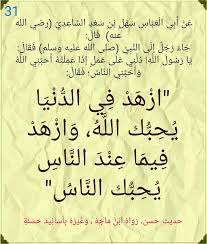 31
عَنْ أَبِي الْعَبَّاسِ سَهْلِ بْنِ سَعْدٍ السَّاعِدِيِّ (رضي الله
عنه) قَالَ:
جَاءَ رَجُلٌ إِلَى النَّبِيِّ (صلى الله عليه وسلم) فَقَالَ:
يَا رَسُولَ اللَّهِ! دُلَّنِي عَلَى عَمَلٍ إِذَا عَمِلْتُهُ أَحَبَّنِيَ اللَّهُ
وَأَحَبَّنِي النَّاسُ؛ فَقَالَ:
"ازْهَدْ فِي الدُّنْيَا
يُحِبُّك اللَّهُ، وَازْهَدْ
فِيمَا عِنْدَ النَّاسِ
يُحِبُّك النَّاسُ"
حديث حسن، رَوَاهُ ابْنُ مَاجَهْ ، وَغَيْرُهُ بِأَسَانِيدَ حَسَنَةٍ